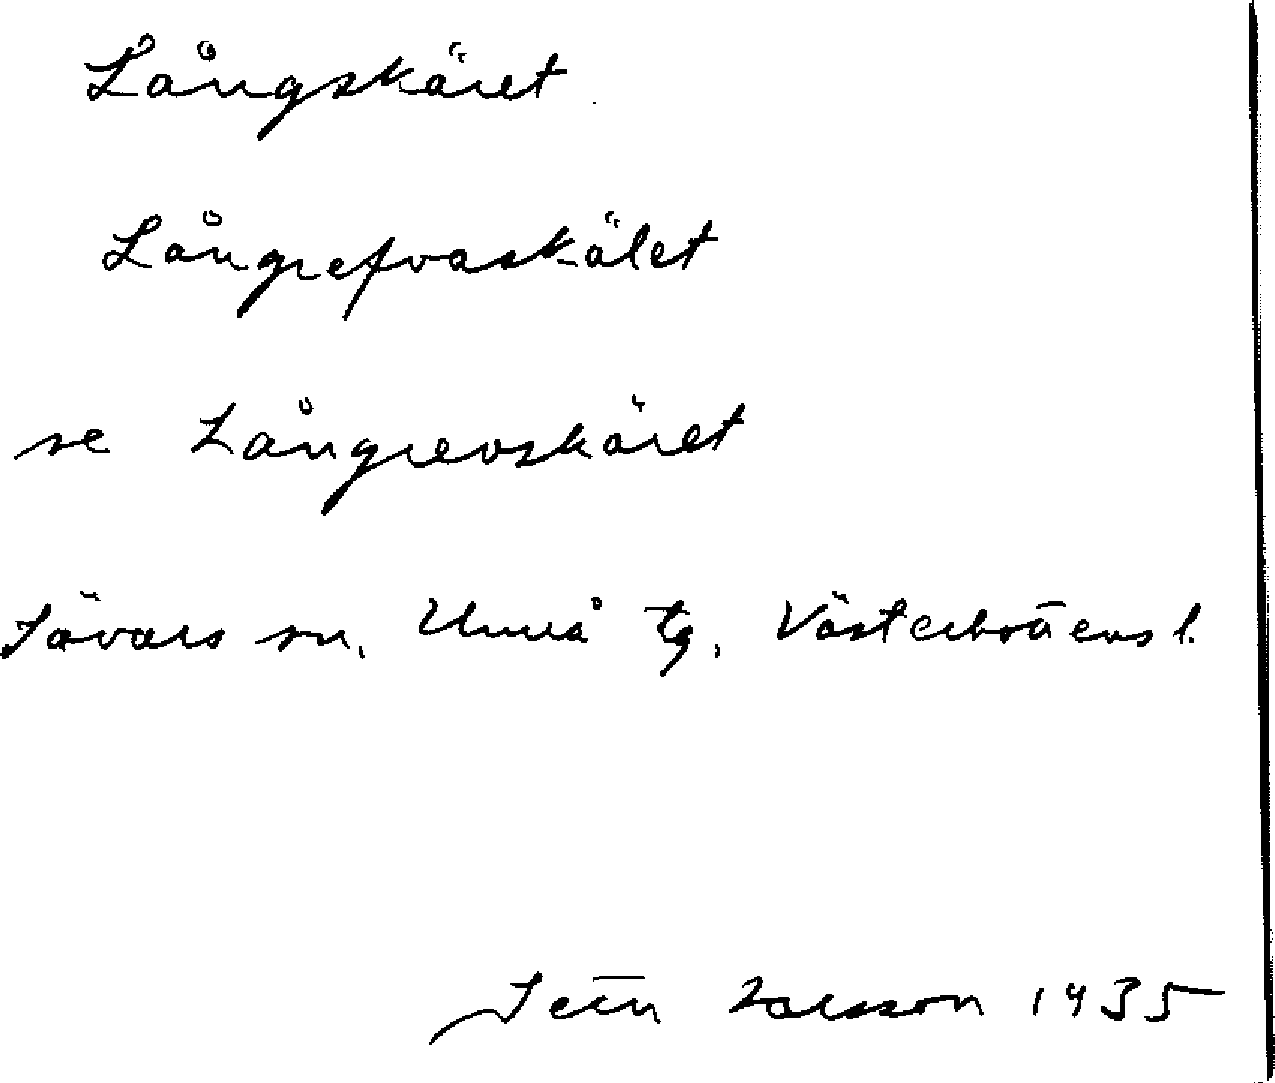 Långskäret
Långrefvaskälet
se Långrevskäret
Sävars sn. Umeå tg, Västerbottens l.
Larsson 1935